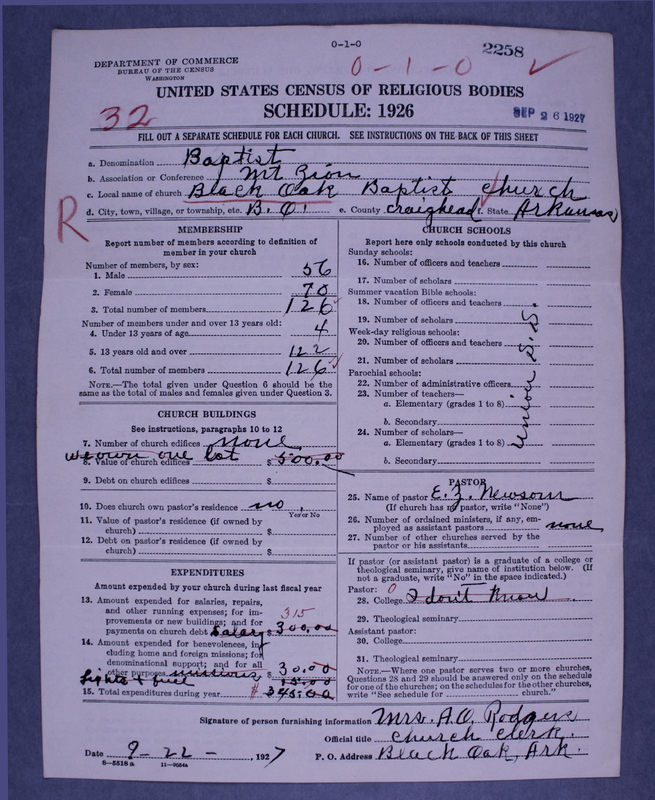 0-1-0
2258
DEPARTMENT OF COMMERCE
BUREAU OF THE CENSUS
WASHINGTON
0-1-0 ✓
UNITED STATES CENSUS OF RELIGIOUS BODIES
32
SCHEDULE: 1926
SEP 26 1927
FILL OUT A SEPARATE SCHEDULE FOR EACH CHURCH. SEE INSTRUCTIONS ON THE BACK OF THIS SHEET
a. Denomination Baptist
b. Association or Conference Mt Zion
c. Local name of church Black Oak Baptist church
R
d. City, town, village, or township, etc. B. O. e. County Craighead f. State Arkansas
MEMBERSHIP
Report number of members according to definition of
member in your church
Number of members, by sex:
1. Male 56
2. Female 70
3. Total number of members 126
Number of members under and over 13 years old:
4. Under 13 years of age 4
5. 13 years old and over 122
6. Total number of members 126
NOTE.—The total given under Question 6 should be the
same as the total of males and females given under Question 3.
CHURCH BUILDINGS
See instructions, paragraphs 10 to 12
7. Number of church edifices none
we own one lot
8. Value of church edifices $ 500.00
9. Debt on church edifices $
10. Does church own pastor's residence no.
Yes or No
11. Value of pastor's residence (if owned by
church) $
12. Debt on pastor's residence (if owned by
church) $
EXPENDITURES
Amount expended by your church during last fiscal year
13. Amount expended for salaries, repairs,
and other running expenses; for im-
provements or new buildings; and for
315
payments on church debt Salary $ 300.00
14. Amount expended for benevolences, in-
cluding home and foreign missions; for
denominational support; and for all
other purposes missions 30.00
lights & fuel 15.00
15. Total expenditures during year $ 345.00
CHURCH SCHOOLS
Report here only schools conducted by this church
Sunday schools:
16. Number of officers and teachers
17. Number of scholars
Summer vacation Bible schools:
18. Number of officers and teachers
19. Number of scholars
Week-day religious schools:
20. Number of officers and teachers
21. Number of scholars
Parochial schools:
22. Number of administrative officers
23. Number of teachers—
a. Elementary (grades 1 to 8)
b. Secondary
24. Number of scholars—
a. Elementary (grades 1 to 8)
b. Secondary
Union S.S.
PASTOR
25. Name of pastor E. Z. Newsom
(If church has no pastor, write "None")
26. Number of ordained ministers, if any, em-
ployed as assistant pastors none
27. Number of other churches served by the
pastor or his assistants
If pastor (or assistant pastor) is a graduate of a college or
theological seminary, give name of institution below. (If
not a graduate, write "No" in the space indicated.)
Pastor: 0
28. College I don't know
29. Theological seminary
Assistant pastor:
30. College
31. Theological seminary
NOTE.—Where one pastor serves two or more churches,
Questions 28 and 29 should be answered only on the schedule
for one of the churches; on the schedules for the other churches,
write "See schedule for church."
Signature of person furnishing information Mrs. A.O. Rodgers
Official title church clerk.
Date 9-22-, 1927 P. O. Address Black Oak, Ark.
8-5518a 11-9054a